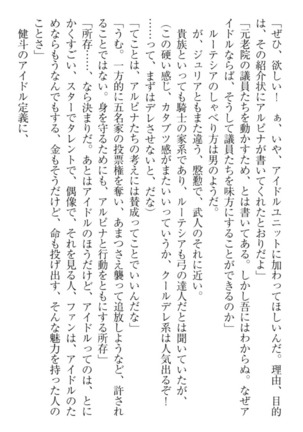 「ぜひ、欲しい！　あ、いや、アイドルユニットに加わってほしいんだ。理由、目的
は、その紹介状にアルビナが書いてくれたとおりだよ」
「元老院の議員たちを動かすため、とは書いてある。しかし吾にはわからぬ。なぜア
イドルならば、そうして議員たちを味方にすることができるのか」
ルーテシアのしゃべり方は男のようだ。
が、ジュリアともまた違う、慇懃で、武人のそれに近い。
貴族といっても騎士の家系であり、ルーテシアも弓の達人だとは聞いていたが、
（この硬い感じ、カタブツ感がまたいいっていうか、クールデレ系は人気出るぞ！
……って、まずはデレさせないと、だな）
「てことは、アルビナたちの考えには賛成ってことでいいんだな」
「うむ。一方的に五名家の投票権を奪い、あまつさえ襲って追放しようなど、許され
ることではない。身を守るためにも、アルビナと行動をともにする所存」
「所存……、なら決まりだ。あとはアイドルのほうだけど、アイドルってのは、とに
かくすごい、スターでタレントで、偶像で、それを見る人、ファンは、アイドルのた
めならもうなんでもする、金もそうだけど、命も投げ出す、そんな魅力を持った人の
ことさ」
健斗のアイドル定義に、